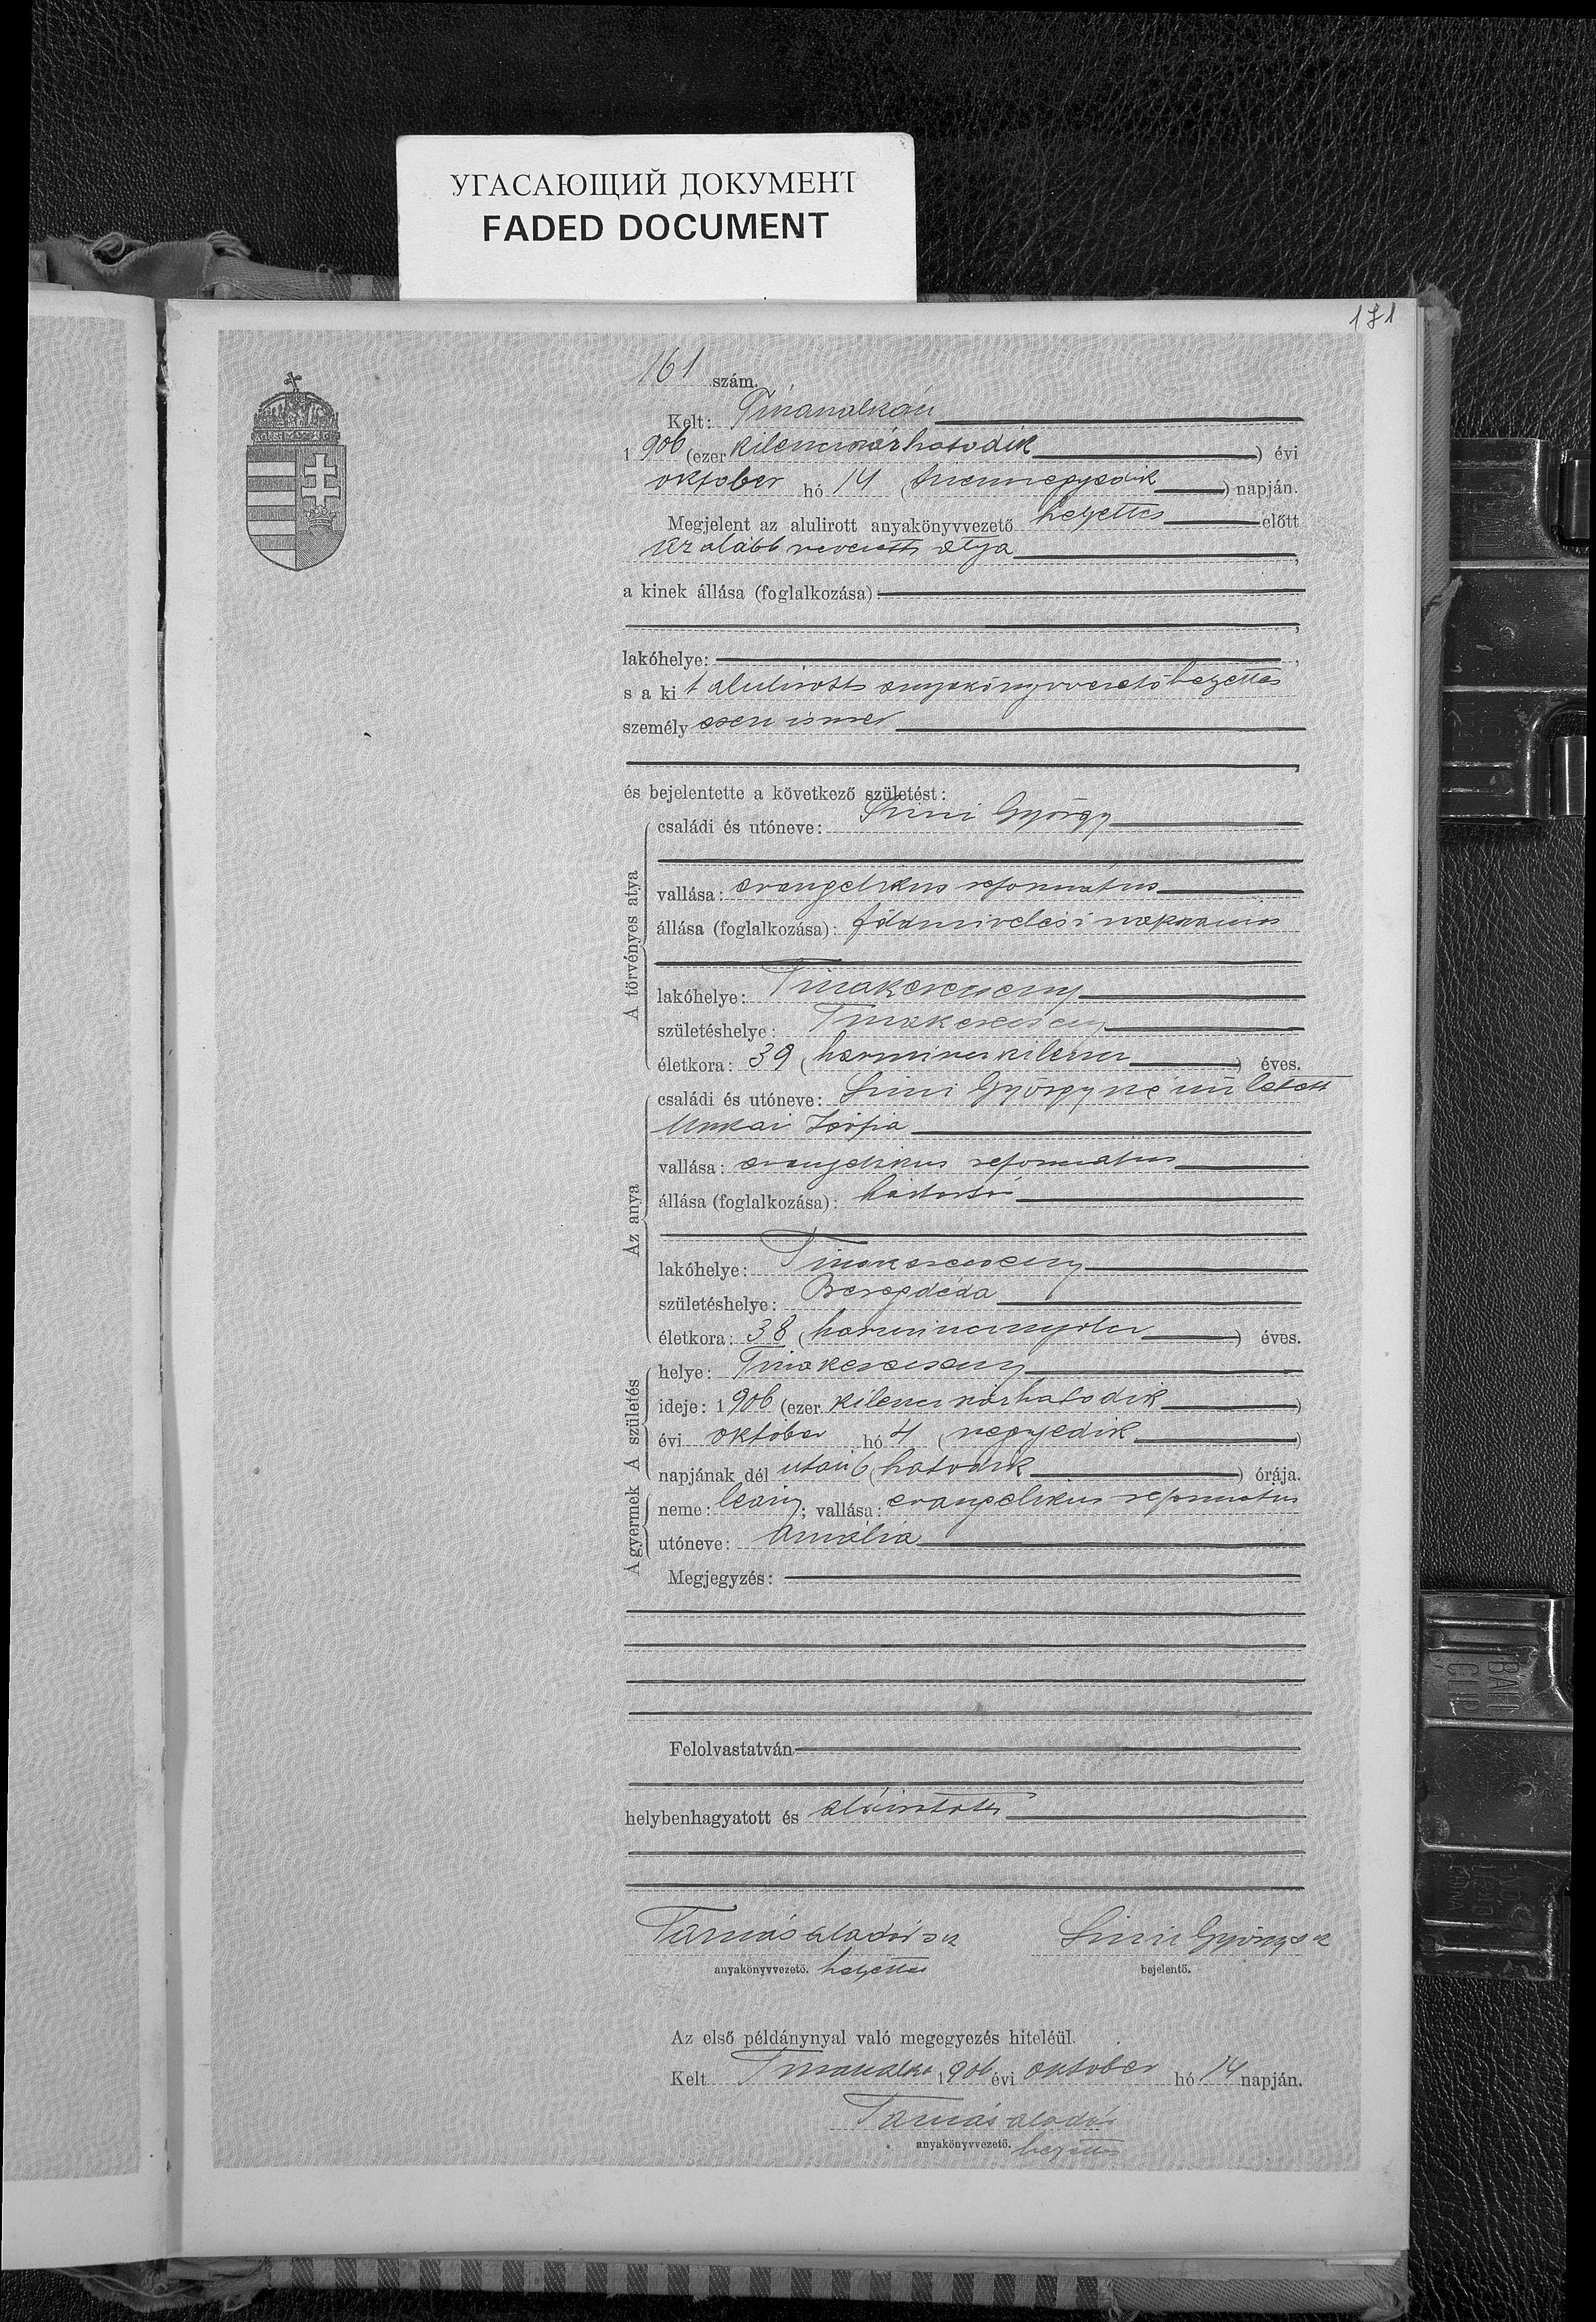 УГАСАЮЩИЙ ДОКУМЕНТ
FADED DOCUMENT
171
161 szám.
Kelt:
1906 (ezer kilenczszázhatodik) évi
október hó 14 (tizennegyedik) napján.
Megjelent az alulirott anyakönyvvezető helyettes előtt
az alább nevezett atya,
a kinek állása (foglalkozása):
lakóhelye:
s a kit alulirott anyakönyvvezető helyettes
személyesen ismer
és bejelentette a következő születést:
A törvényes atya
családi és utóneve: György
vallása: evangelikus református
állása (foglalkozása): földmivelési napszámos
lakóhelye: Tiszakerecseny
születéshelye: Tiszakerecseny
életkora: 39 (harminczkilencz) éves.
Az anya
családi és utóneve: Györgyné született
Zsófia
vallása: evangelikus református
állása (foglalkozása): háztartás
lakóhelye: Tiszakerecseny
születéshelye: Beregdéda
életkora: 38 (harmincznyolcz) éves.
A születés
helye: Tiszakerecseny
ideje: 1906 (ezer kilenczszázhatodik)
évi október hó 4 (negyedik)
napjának dél után 6 (hatodik) órája.
A gyermek
neme: leány; vallása: evangelikus református
utóneve: Amália
Megjegyzés:
Felolvastatván
helybenhagyatott és aláiratott
Tamás Aladár sk György sk
anyakönyvvezető. helyettes bejelentő.
Az első példánynyal való megegyezés hiteléül.
Kelt 1906 évi október hó 14 napján.
Tamás Aladár
anyakönyvvezető. helyettes